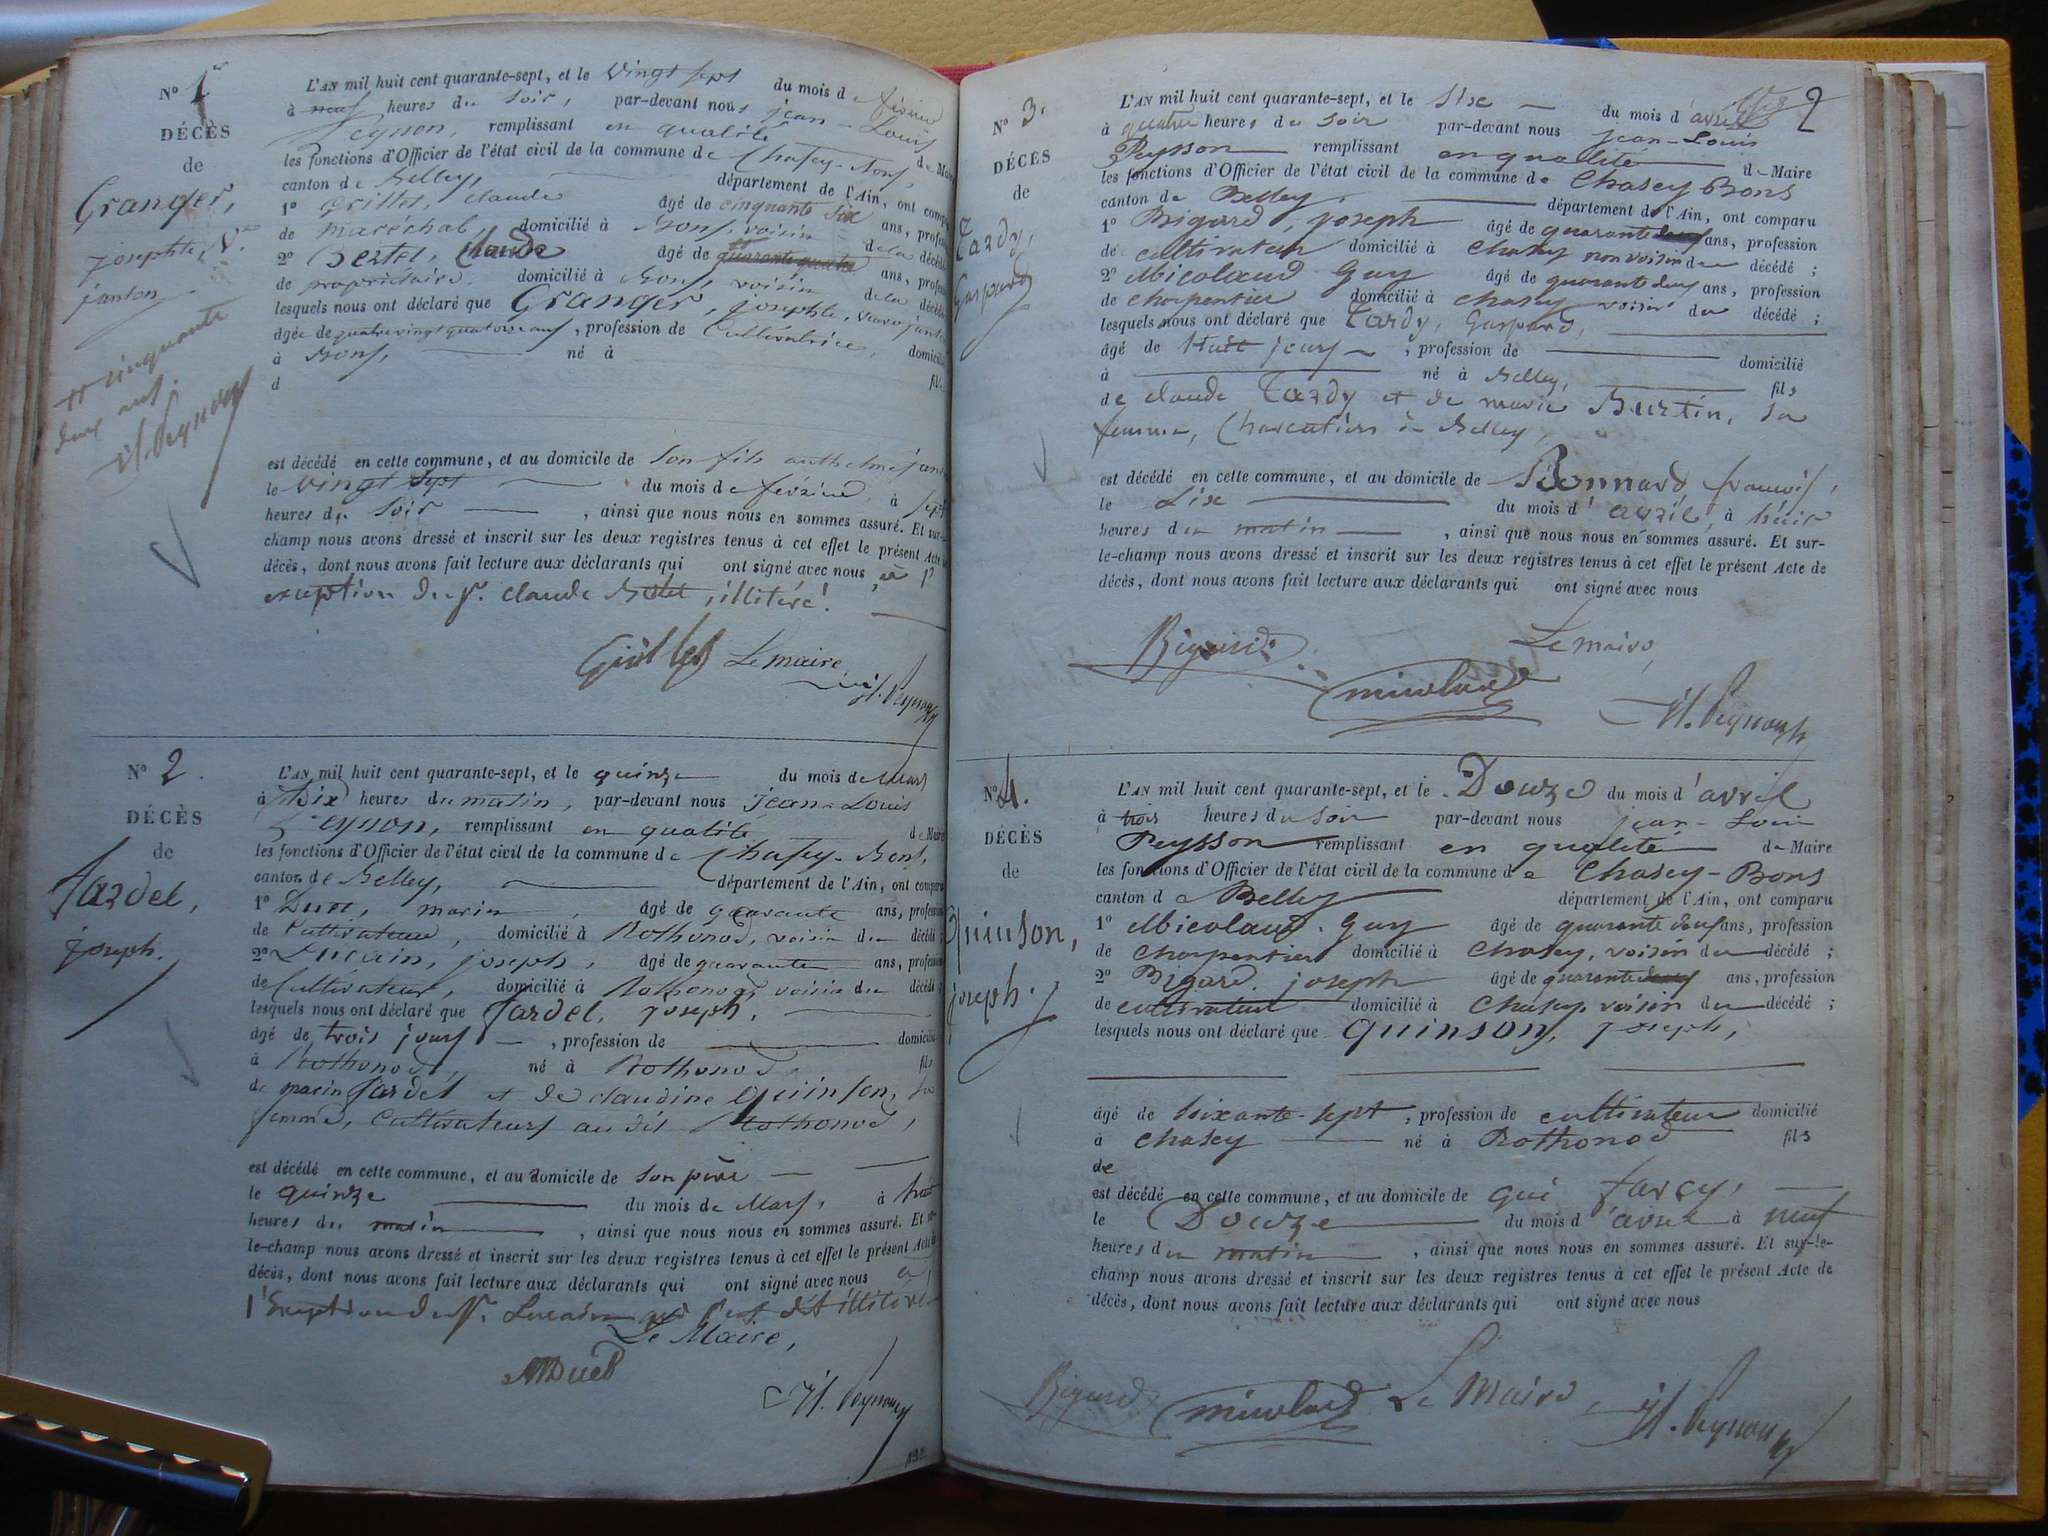 N° 1
DÉCÈS
de
Granger,
josephte, Ve
janton
cinquante
deux ans.
JL. Peysson
L'AN mil huit cent quarante-sept, et le vingt sept du mois de février
à neuf heures du soir, par-devant nous jean-Louis
Peysson, remplissant en qualité de Maire
les fonctions d'Officier de l'état civil de la commune de Chasey-Bons,
canton de Belley, département de l'Ain, ont comparu
1° Grillet, claude âgé de cinquante six ans, profession
de maréchal, domicilié à Bons, voisin de la décédée
2° Bertet, Claude âgé de quarante quatre ans, profession
de propriétaire, domicilié à Bons, voisin de la décédée
lesquels nous ont déclaré que Granger, josephte, veuve janton
âgée de quatre vingt quatorze ans, profession de Cultivatrice, domicilié
à Bons, né à
d fil
est décédé en cette commune, et au domicile de son fils anthelme jant
le vingt sept du mois de février, à sept
heures du soir, ainsi que nous nous en sommes assuré. Et sur-le-
champ nous avons dressé et inscrit sur les deux registres tenus à cet effet le présent Acte de
décès, dont nous avons fait lecture aux déclarants qui ont signé avec nous, à l'
exception du sr. claude Bertet, illitéré.
Grillet Le maire,
JL. Peysson
N° 2.
DÉCÈS
de
Jardel,
joseph.
L'AN mil huit cent quarante-sept, et le quinze du mois de Mars
à dix heures du matin, par-devant nous jean-Louis
Peysson, remplissant en qualité de Maire
les fonctions d'Officier de l'état civil de la commune de Chasey-Bons,
canton de Belley, département de l'Ain, ont comparu
1° marin, âgé de quarante ans, profession
de Cultivateur, domicilié à Rothonod, voisin du décédé;
2° joseph, âgé de quarante ans, profession
de Cultivateur, domicilié à Rothonod, voisin du décédé;
lesquels nous ont déclaré que Jardel, joseph,
âgé de trois jours, profession de domicilié
à Rothonod, né à Rothonod, fils
de marin Jardel et de claudine Quinson, sa
femme, Cultivateurs au dit Rothonod,
est décédé en cette commune, et au domicile de son père
le quinze du mois de Mars, à huit
heures du matin, ainsi que nous nous en sommes assuré. Et sur-
le-champ nous avons dressé et inscrit sur les deux registres tenus à cet effet le présent Acte de
décès, dont nous avons fait lecture aux déclarants qui ont signé avec nous à
l'exception du sr. qui s'est dit illitéré
Le Maire,
JL. Peysson
2
N° 3.
DÉCÈS
de
Tardy,
Gaspard
L'AN mil huit cent quarante-sept, et le six du mois d'avril
à quatre heures du soir par-devant nous jean-Louis
Peysson remplissant en qualité de Maire
les fonctions d'Officier de l'état civil de la commune de Chasey Bons
canton de Belley, département de l'Ain, ont comparu
1° Bigard, joseph âgé de quarante deux ans, profession
de cultivateur domicilié à Chasey non voisin du décédé;
2° Micolaud Guy âgé de quarante deux ans, profession
de charpentier domicilié à Chasey voisin du décédé;
lesquels nous ont déclaré que Tardy, Gaspard,
âgé de Huit jours, profession de domicilié
à né à Belley, fils
de claude Tardy et de marie Burtin, sa
femme, Charcutiers à Belley,
est décédé en cette commune, et au domicile de Bonnard françois,
le six du mois d'avril, à huit
heures du matin, ainsi que nous nous en sommes assuré. Et sur-
le-champ nous avons dressé et inscrit sur les deux registres tenus à cet effet le présent Acte de
décès, dont nous avons fait lecture aux déclarants qui ont signé avec nous
Bigard Le maire,
micolaud
JL. Peysson
N° 4.
DÉCÈS
de
Quinson,
joseph.
L'AN mil huit cent quarante-sept, et le Douze du mois d'avril
à trois heures du soir par-devant nous jean-Louis
Peysson remplissant en qualité de Maire
les fonctions d'Officier de l'état civil de la commune de Chasey-Bons
canton de Belley département de l'Ain, ont comparu
1° Micolaud Guy âgé de quarante deux ans, profession
de charpentier domicilié à Chasey, voisin du décédé;
2° Bigard, joseph âgé de quarante deux ans, profession
de cultivateur domicilié à Chasey, voisin du décédé;
lesquels nous ont déclaré que Quinson, joseph,
âgé de soixante-sept, profession de cultivateur domicilié
à Chasey né à Rothonod fils
de
est décédé en cette commune, et au domicile de gui Farcy,
le Douze du mois d'avril à neuf
heures du matin, ainsi que nous nous en sommes assuré. Et sur-le-
champ nous avons dressé et inscrit sur les deux registres tenus à cet effet le présent Acte de
décès, dont nous avons fait lecture aux déclarants qui ont signé avec nous
Bigard micolaud Le Maire, JL. Peysson